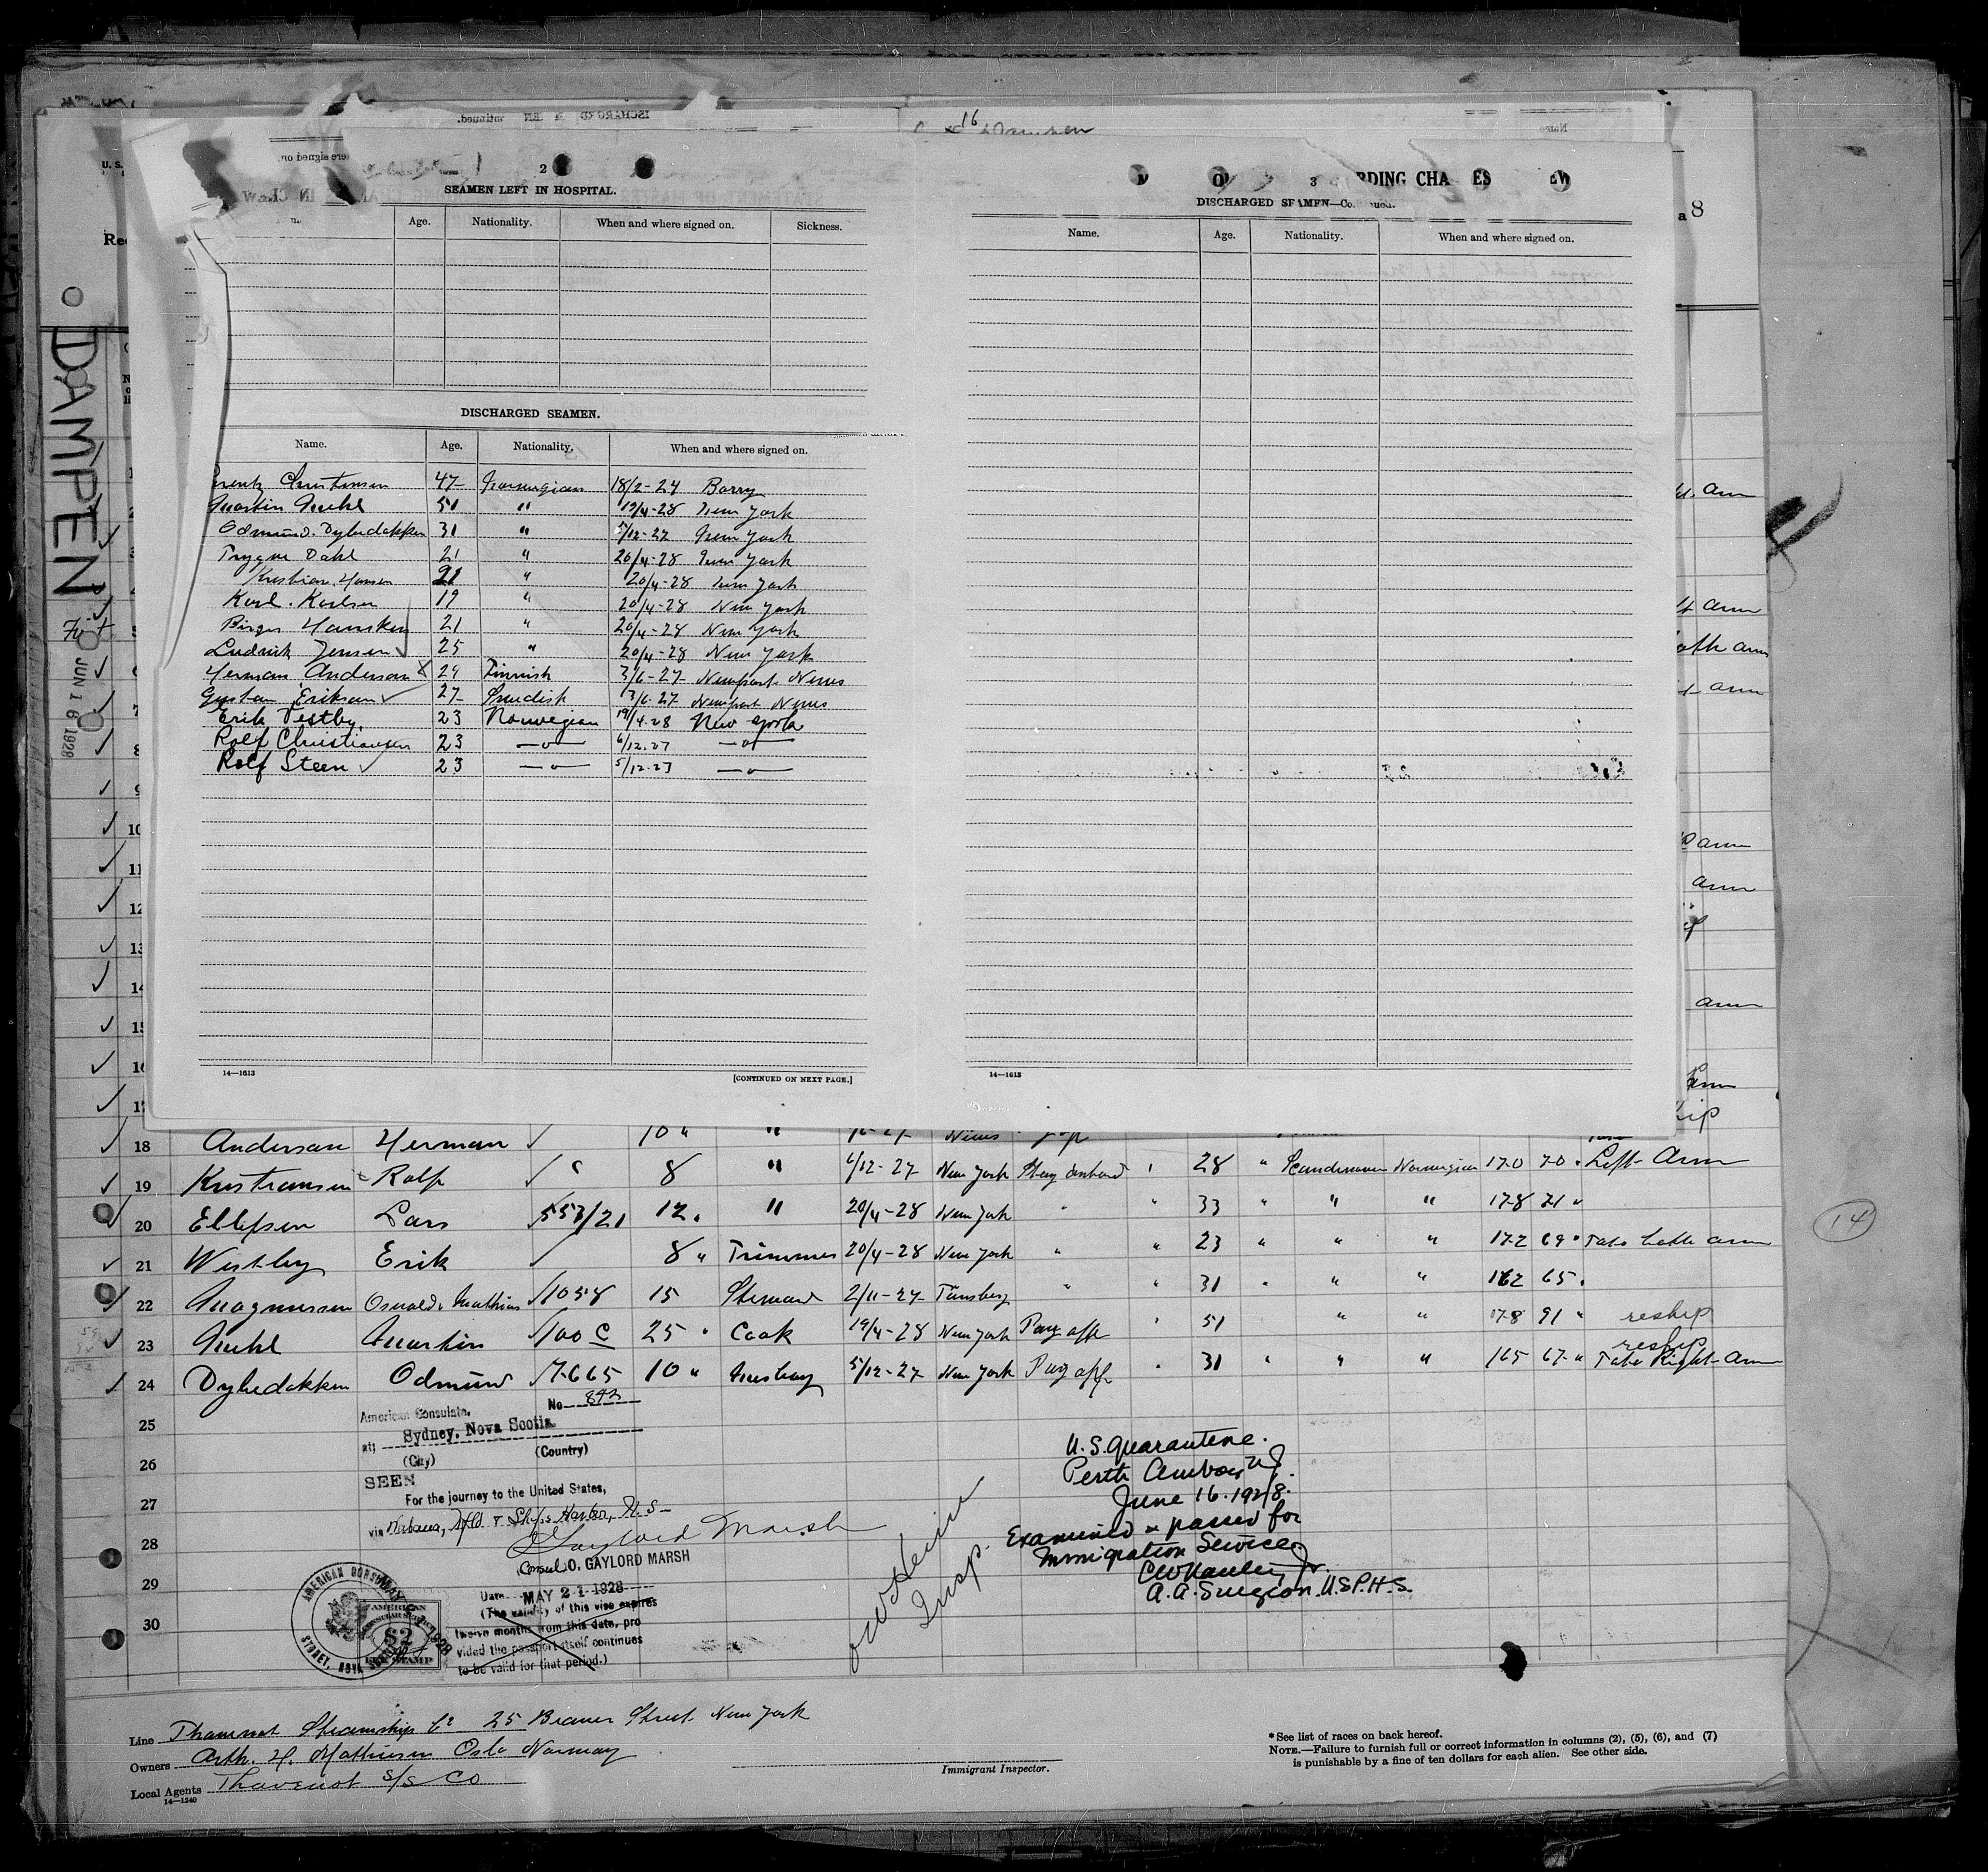 16
2
SEAMEN LEFT IN HOSPITAL.
Age. Nationality. When and where signed on. Sickness.
DISCHARGED SEAMEN.
Name. Age. Nationality. When and where signed on.
Christensen 47 Norwegian 18/2-24 Barry
Martin Muhl 51 " 19/4-28 New York
Odmund. Dybedokken 31 " 5/12-27 New York
Trygve Dahl 21 " 20/4-28 New York
Kristian Hansen 21 " 20/4-28 New York
Karl. Karlsen 19 " 20/4-28 New York
Birger 21 " 20/4-28 New York
Ludvik Jensen 25 " 20/4-28 New York
Herman Anderson 29 Finnish 3/6-27 Newport News
Gustav Erikson 27 Swedish 3/6-27 Newport News
Erik Vestby 23 Norwegian 19/4-28 New York
Rolf Christiansen 23 —o— 6/12.27 —o—
Rolf Steen 23 —o— 5/12-27 —o—
14—1613 [CONTINUED ON NEXT PAGE.]
3
DISCHARGED SEAMEN—Continued.
Name. Age. Nationality. When and where signed on.
14—1613
8
DAMPEN
JUN 16 1928
9
10
11
12
13
14
15
16
18 Anderson Herman 10 " " News
19 Kristiansen Rolf 8 " 6/12-27 New York Stay onboard 28 " Scandinavian Norwegian 170 70 Left Arm
20 Ellefsen Lars 553/21 12 " 20/4-28 New York " " 33 " " " 178 71 "
21 Westby Erik 8 " Trimmer 20/4-28 New York " " 23 " " " 172 69 " Tato both arm
22 Magnussen Osvald Mathias 1058 15 Steward 2/11-27 Tønsberg " " 31 " " " 162 65
23 Muhl Martin 100 C 25 " Cook 19/4-28 New York Pay off 51 " " 178 91 " reship
reship
24 Dybedokken Odmund 7665 10 " Messboy 5/12-27 New York Pay off 31 " " " 165 67 " Tato Right Arm
25
26
27
28
29
30
No 842
American Consulate,
at; Sydney, Nova Scotia
(City) (Country)
SEEN
For the journey to the United States,
via Wabana, Nfld & Ship Harbor, N.S.
O Gaylord Marsh
Consul O. GAYLORD MARSH
Date MAY 21 1928
(The validity of this vise expires
twelve months from this date, pro
vided the passport itself continues
to be valid for that period.)
AMERICAN CONSULATE
SYDNEY, NOVA SCOTIA
AMERICAN
CONSULAR SERVICE
$2
FEE STAMP
Insp.
U.S. Quarantine.
Perth Amboy NJ.
June 16. 1928.
Examined & passed for
Immigration Service
A. A. Surgeon. U.S.P.H.S.
14
Line Steamship Co 25 Beaver Street New York
Owners Arth. H. Mathiesen Oslo Norway
Local Agents S/S Co
14—1240
Immigrant Inspector.
* See list of races on back hereof.
NOTE.—Failure to furnish full or correct information in columns (2), (5), (6), and (7)
is punishable by a fine of ten dollars for each alien. See other side.